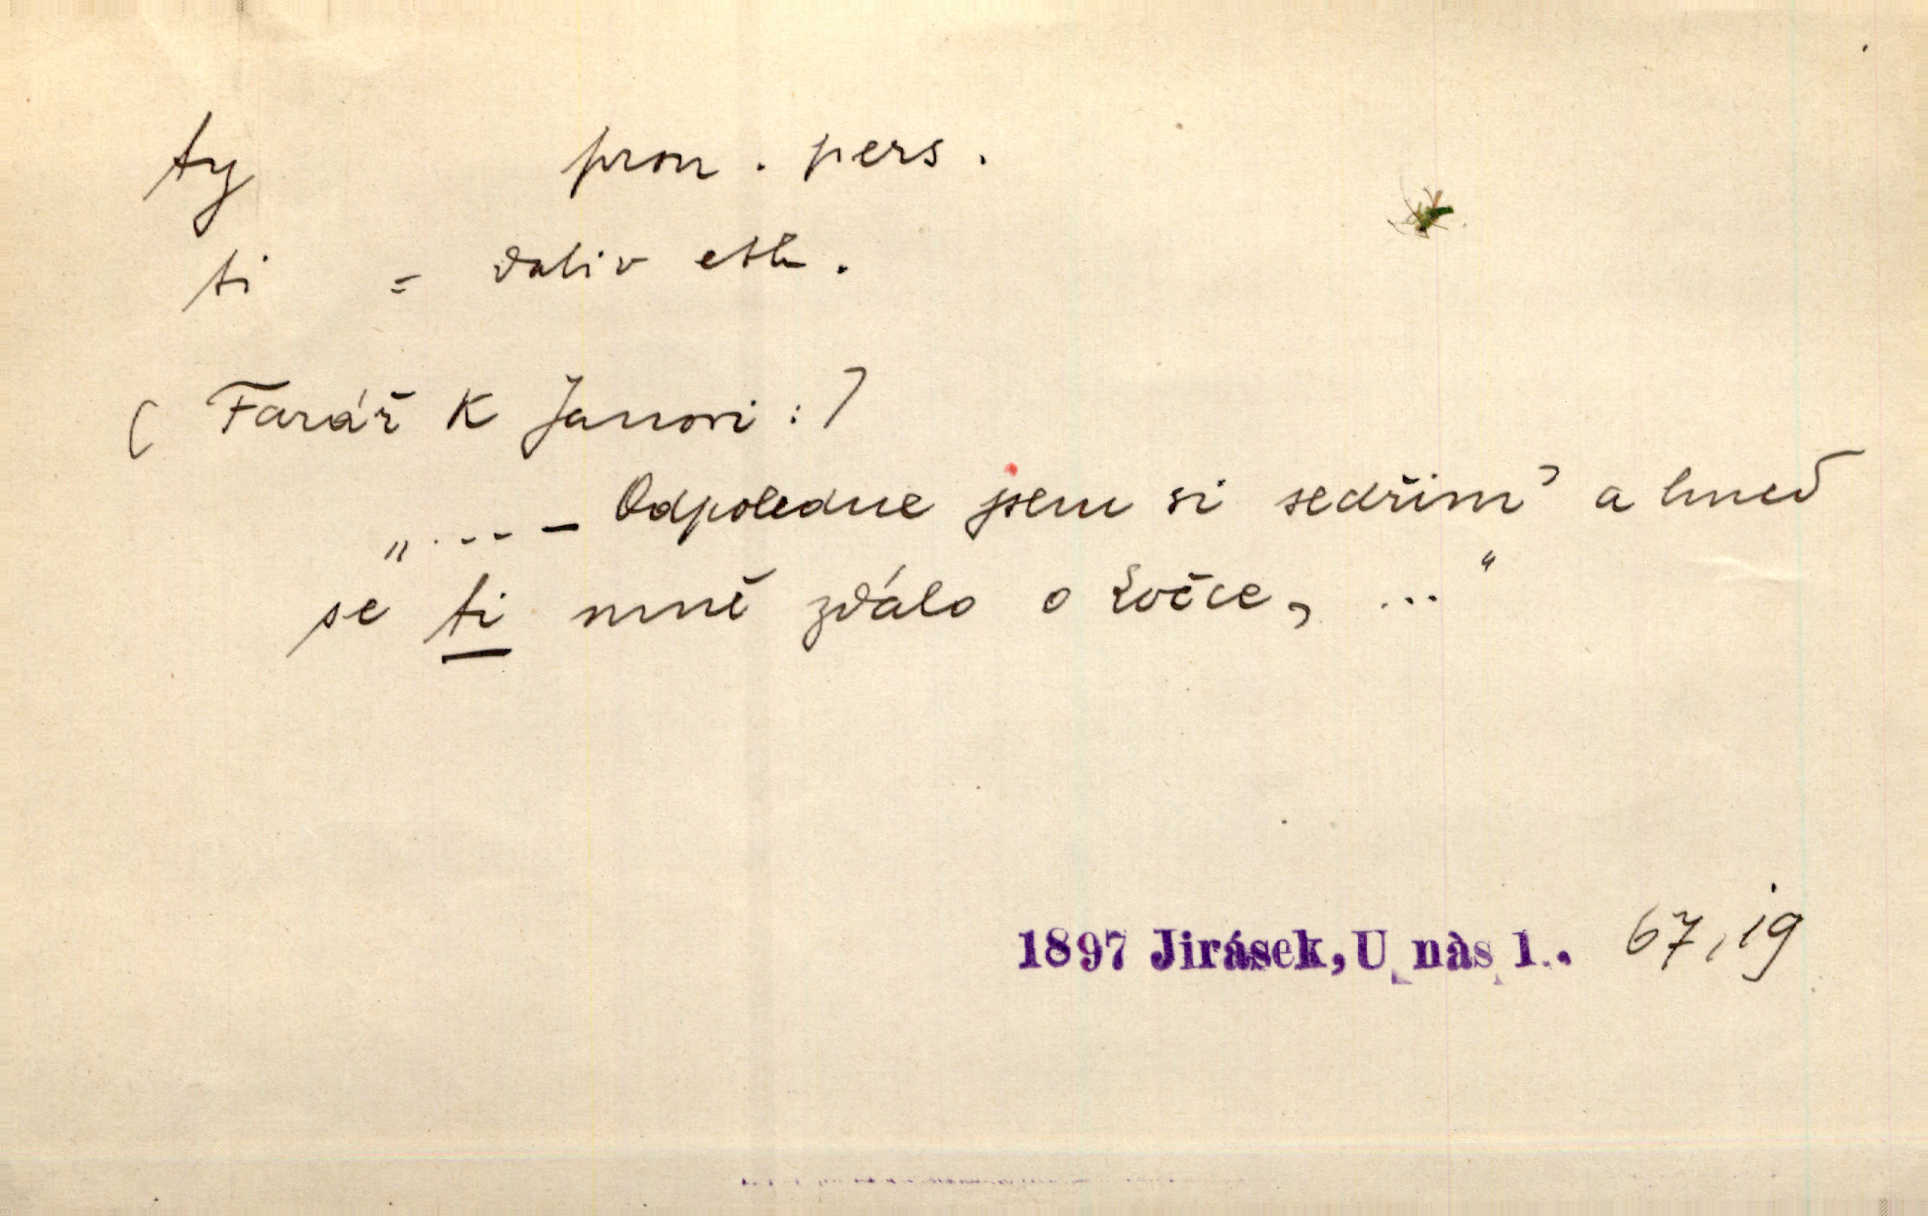 ty pron. pers.
ti = dativ eth.
(Farář k Janovi:)
„... – Odpoledne jsem si sedřiml a hned
se ti mně zdálo o Ločce, ..."
1897 Jirásek, U nás 1.. 67, 19